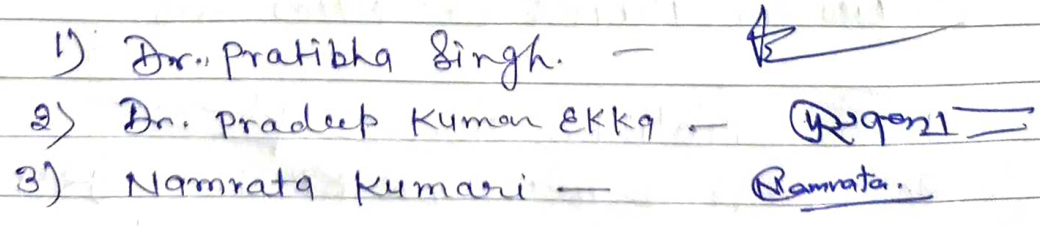 1) Dr. Pratibha Singh. —
2) Dr. Pradeep Kumar Ekka —
3) Namrata Kumari — Namrata.